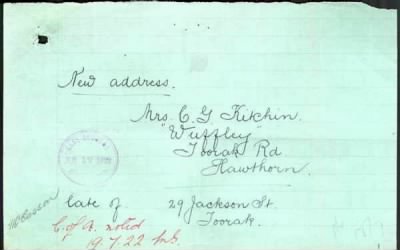 New address.
Mrs. C. G. Kitchin.
"Wuffley"
Toorak Rd
Hawthorn.
late of 29 Jackson St
Toorak.
C. of A. noted
19.7.22